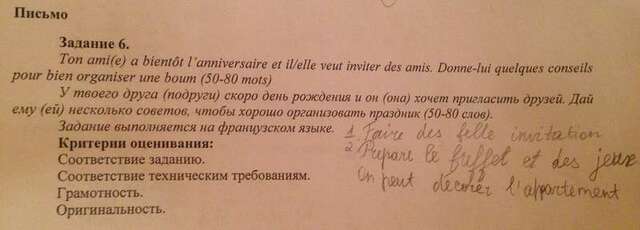 Письмо
Задание 6.
Ton ami(e) a bientôt l'anniversaire et il/elle veut inviter des amis. Donne-lui quelques conseils
pour bien organiser une boum (50-80 mots)
У твоего друга (подруги) скоро день рождения и он (она) хочет пригласить друзей. Дай
ему (ей) несколько советов, чтобы хорошо организовать праздник (50-80 слов).
Задание выполняется на французском языке.
Критерии оценивания:
Соответствие заданию.
Соответствие техническим требованиям.
Грамотность.
Оригинальность.
1 Faire des belle invitation
2 Prepare le buffet et des jeux
On peut decorer l'appartement